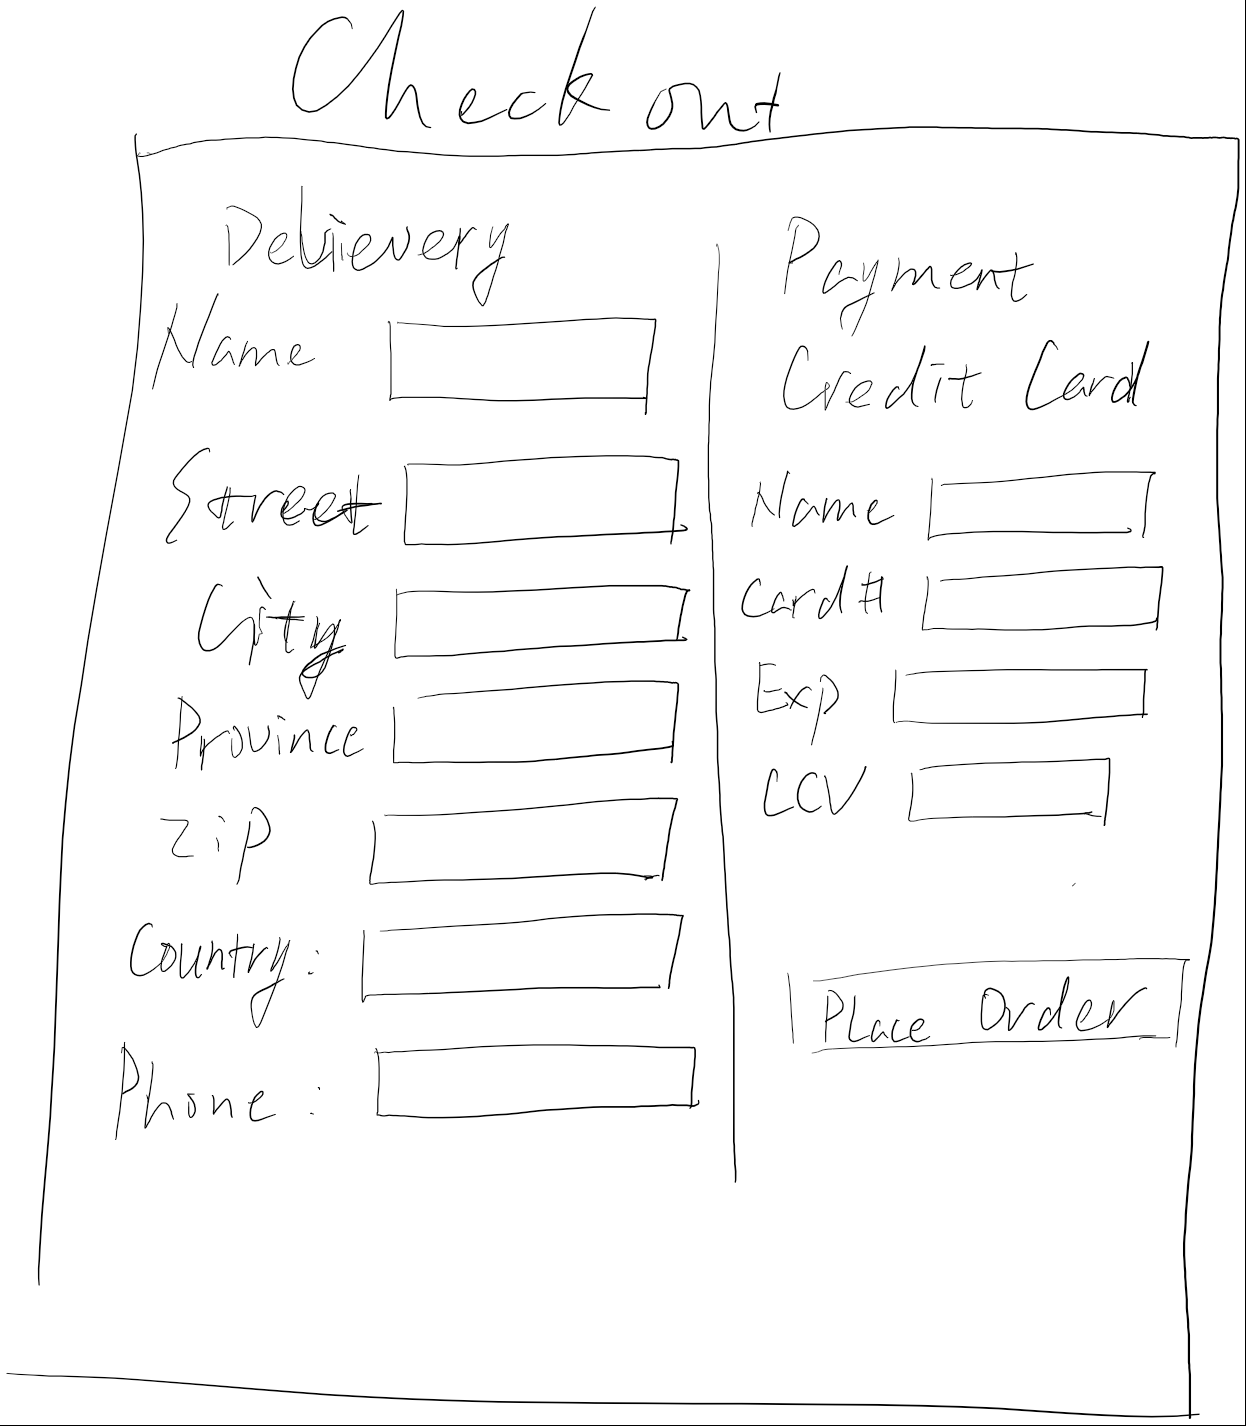 Check out
Delievery
Name
Street
City
Province
Zip
Country:
Phone:
Payment
Credit Card
Name
Card#
Exp
CCV
Place Order